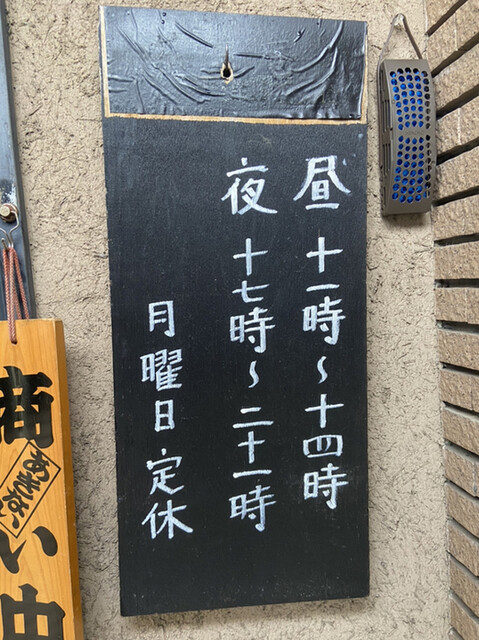 昼 十一時～十四時
夜 十七時～二十一時
月曜日 定休
商い中
あきない